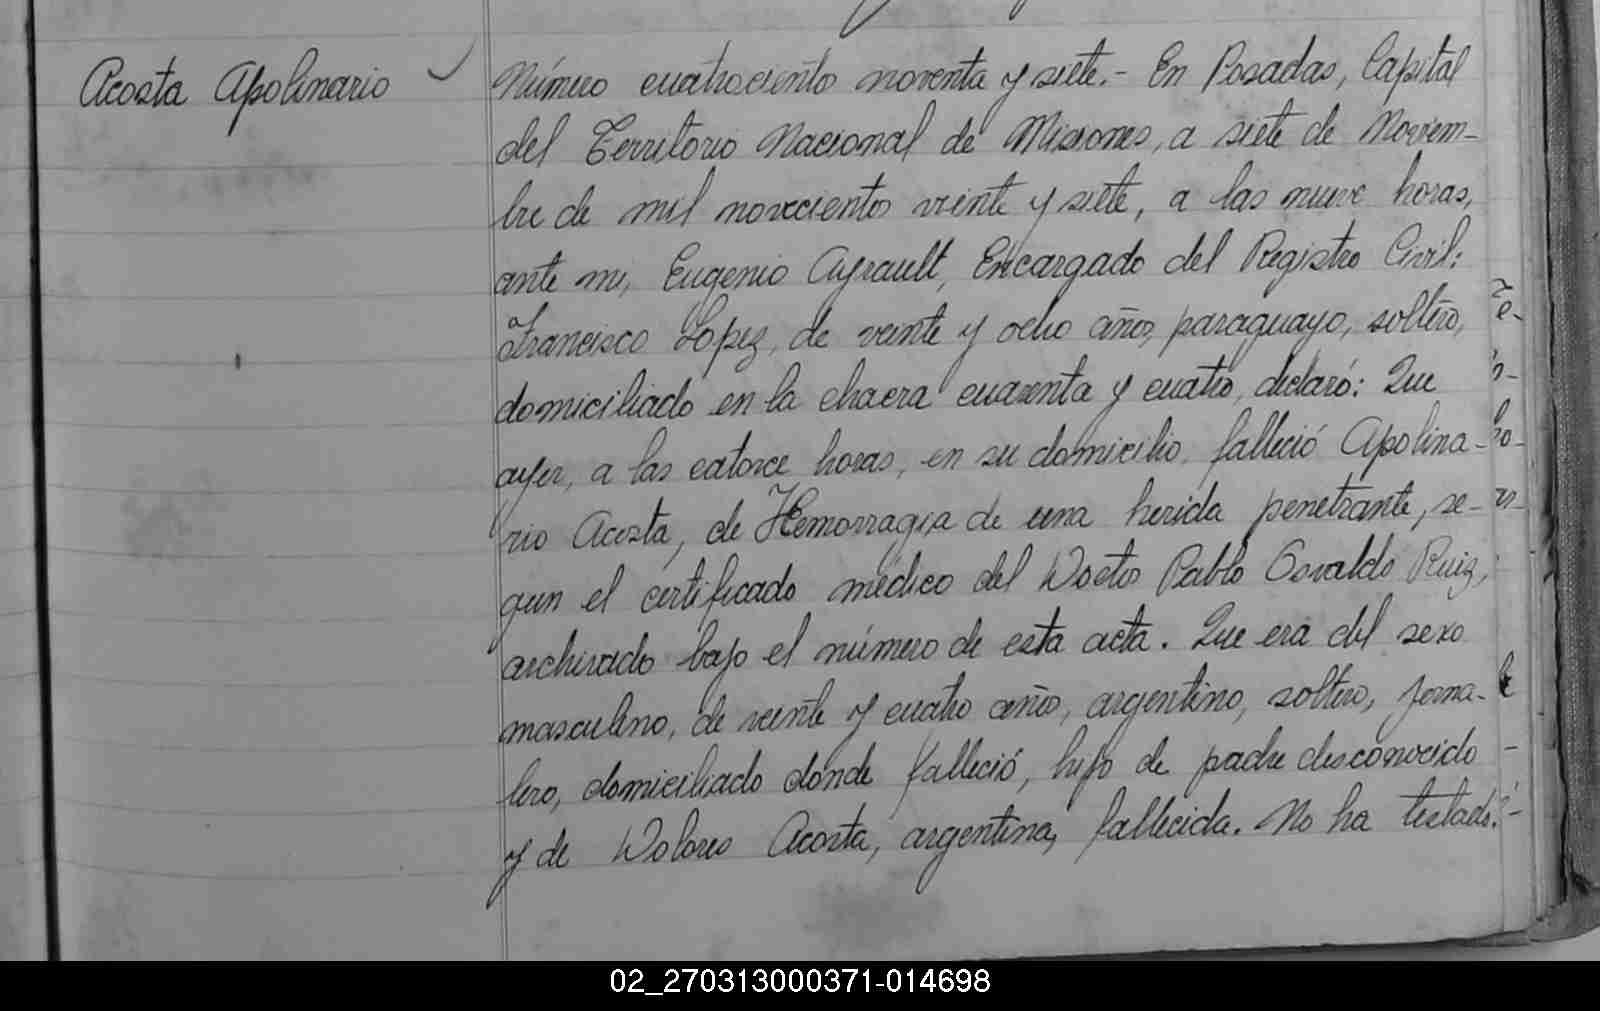 Acosta Apolinario
Número cuatrociento noventa y siete.- En Posadas, Capital
del Territorio Nacional de Misiones, a siete de Noviem-
bre de mil novecientos veinte y siete, a las nueve horas,
ante mi, Eugenio Ayrault, Encargado del Registro Civil:
Francisco Lopez, de veinte y ocho años, paraguayo, soltero,
domiciliado en la chacra cuarenta y cuatro, declaró: Que
ayer, a las catorce horas, en su domicilio, falleció Apolina-
rio Acosta, de Hemorragia de una herida penetrante, se-
gun el certificado médico del Doctor Pablo Osvaldo Ruiz,
archivado bajo el número de esta acta. Que era del sexo
masculino, de veinte y cuatro años, argentino, soltero, jorna-
lero, domiciliado donde falleció, hijo de padre desconocido
y de Dolores Acosta, argentina, fallecida. No ha testado.
02_270313000371-014698